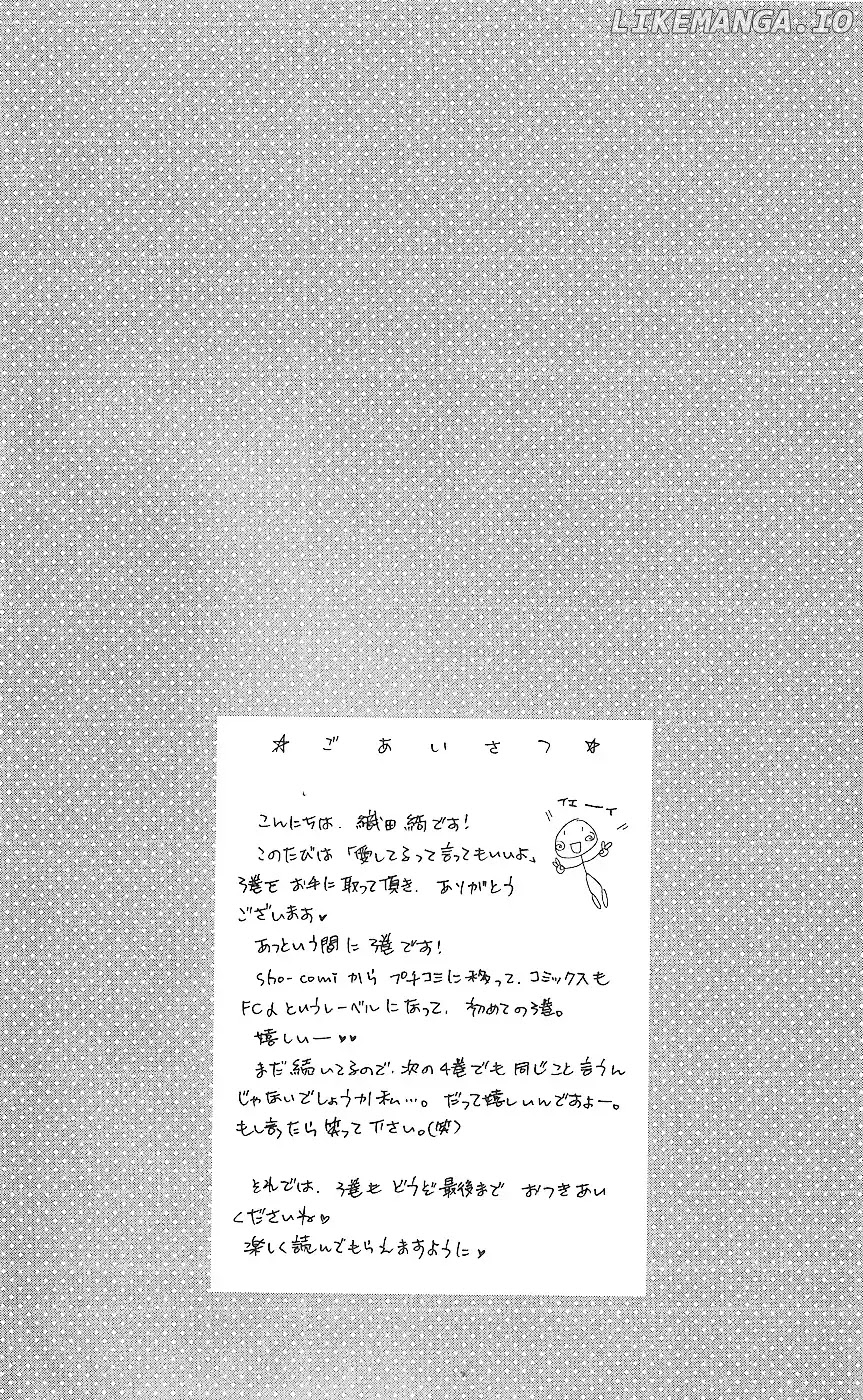 LIKEMANGA.IO
☆ ごあいさつ ☆
イェーィ
こんにちは、織田綺です!
このたびは「愛してるって言ってもいいよ」
3巻をお手に取って頂き、ありがとう
ございます♥
あっという間に3巻です!
Sho-comiからプチコミに移って、コミックスも
FCαというレーベルになって、初めての3巻。
嬉しいー♥♥
まだ続いてるので、次の4巻でも同じこと言うん
じゃないでしょうか私…。だって嬉しいんですよー。
もし言ったら笑って下さい。(笑)
それでは、3巻もどうぞ最後までおつきあい
くださいね♥
楽しく読んでもらえますように♥